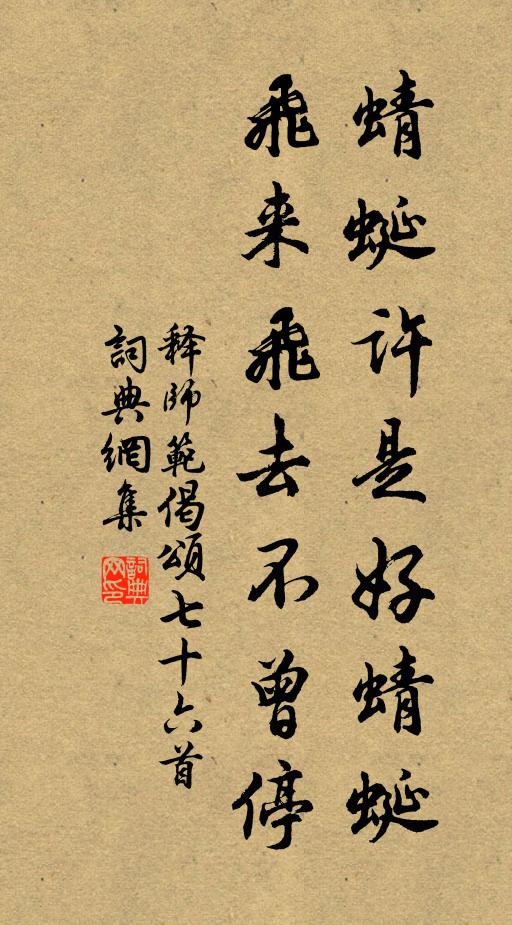 蜻蜓许是好蜻蜓
飛来飛去不曾停
释師範偈頌七十六首
詞典網集
詞典网印